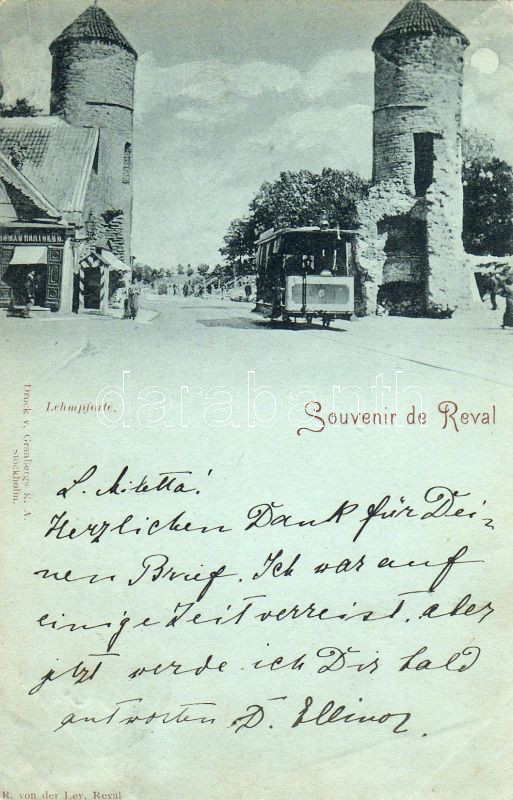 Lehmpforte.
Souvenir de Reval
Druck v. Granbergs K. A
Stockholm.
L. Miletta!
Herzlichen Dank für Dei-
nen Brief. Ich war auf
einige Zeit verreist, aber
jetzt werde ich Dir bald
antworten D. Ellinor
R. von der Ley, Reval
darabanth